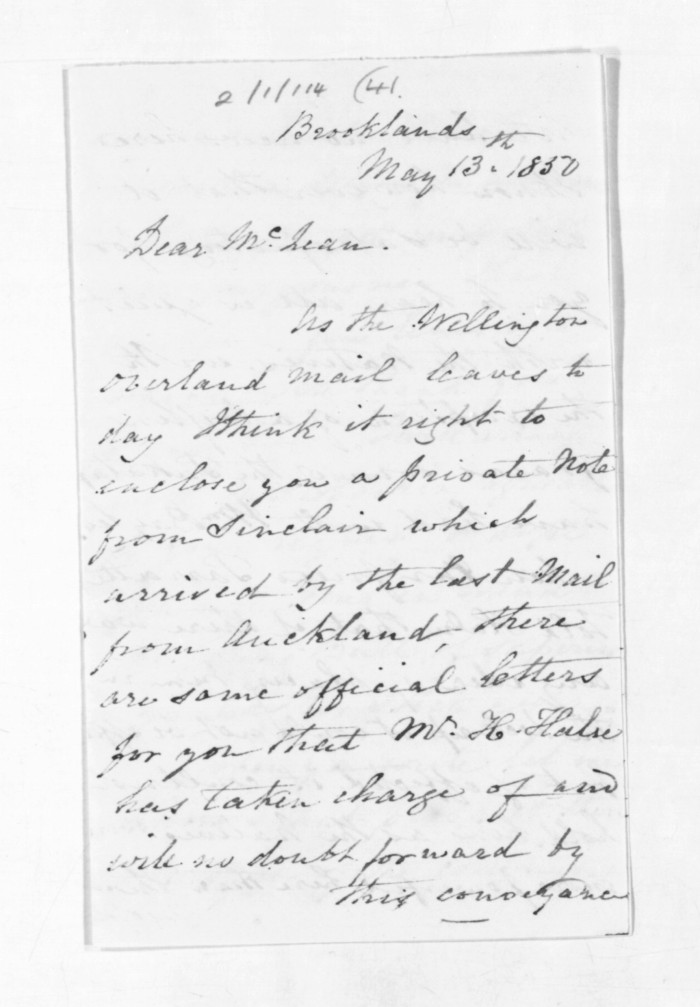 2/1/114 (41.
Brooklands
May 13th 1850
Dear McLean.
As the Wellington
overland mail leaves to
day I think it right to
enclose you a private Note
from Sinclair which
arrived by the last Mail
from Auckland, there
are some official letters
for you that Mr. H Halse
has taken charge of and
will no doubt forward by
this conveyance